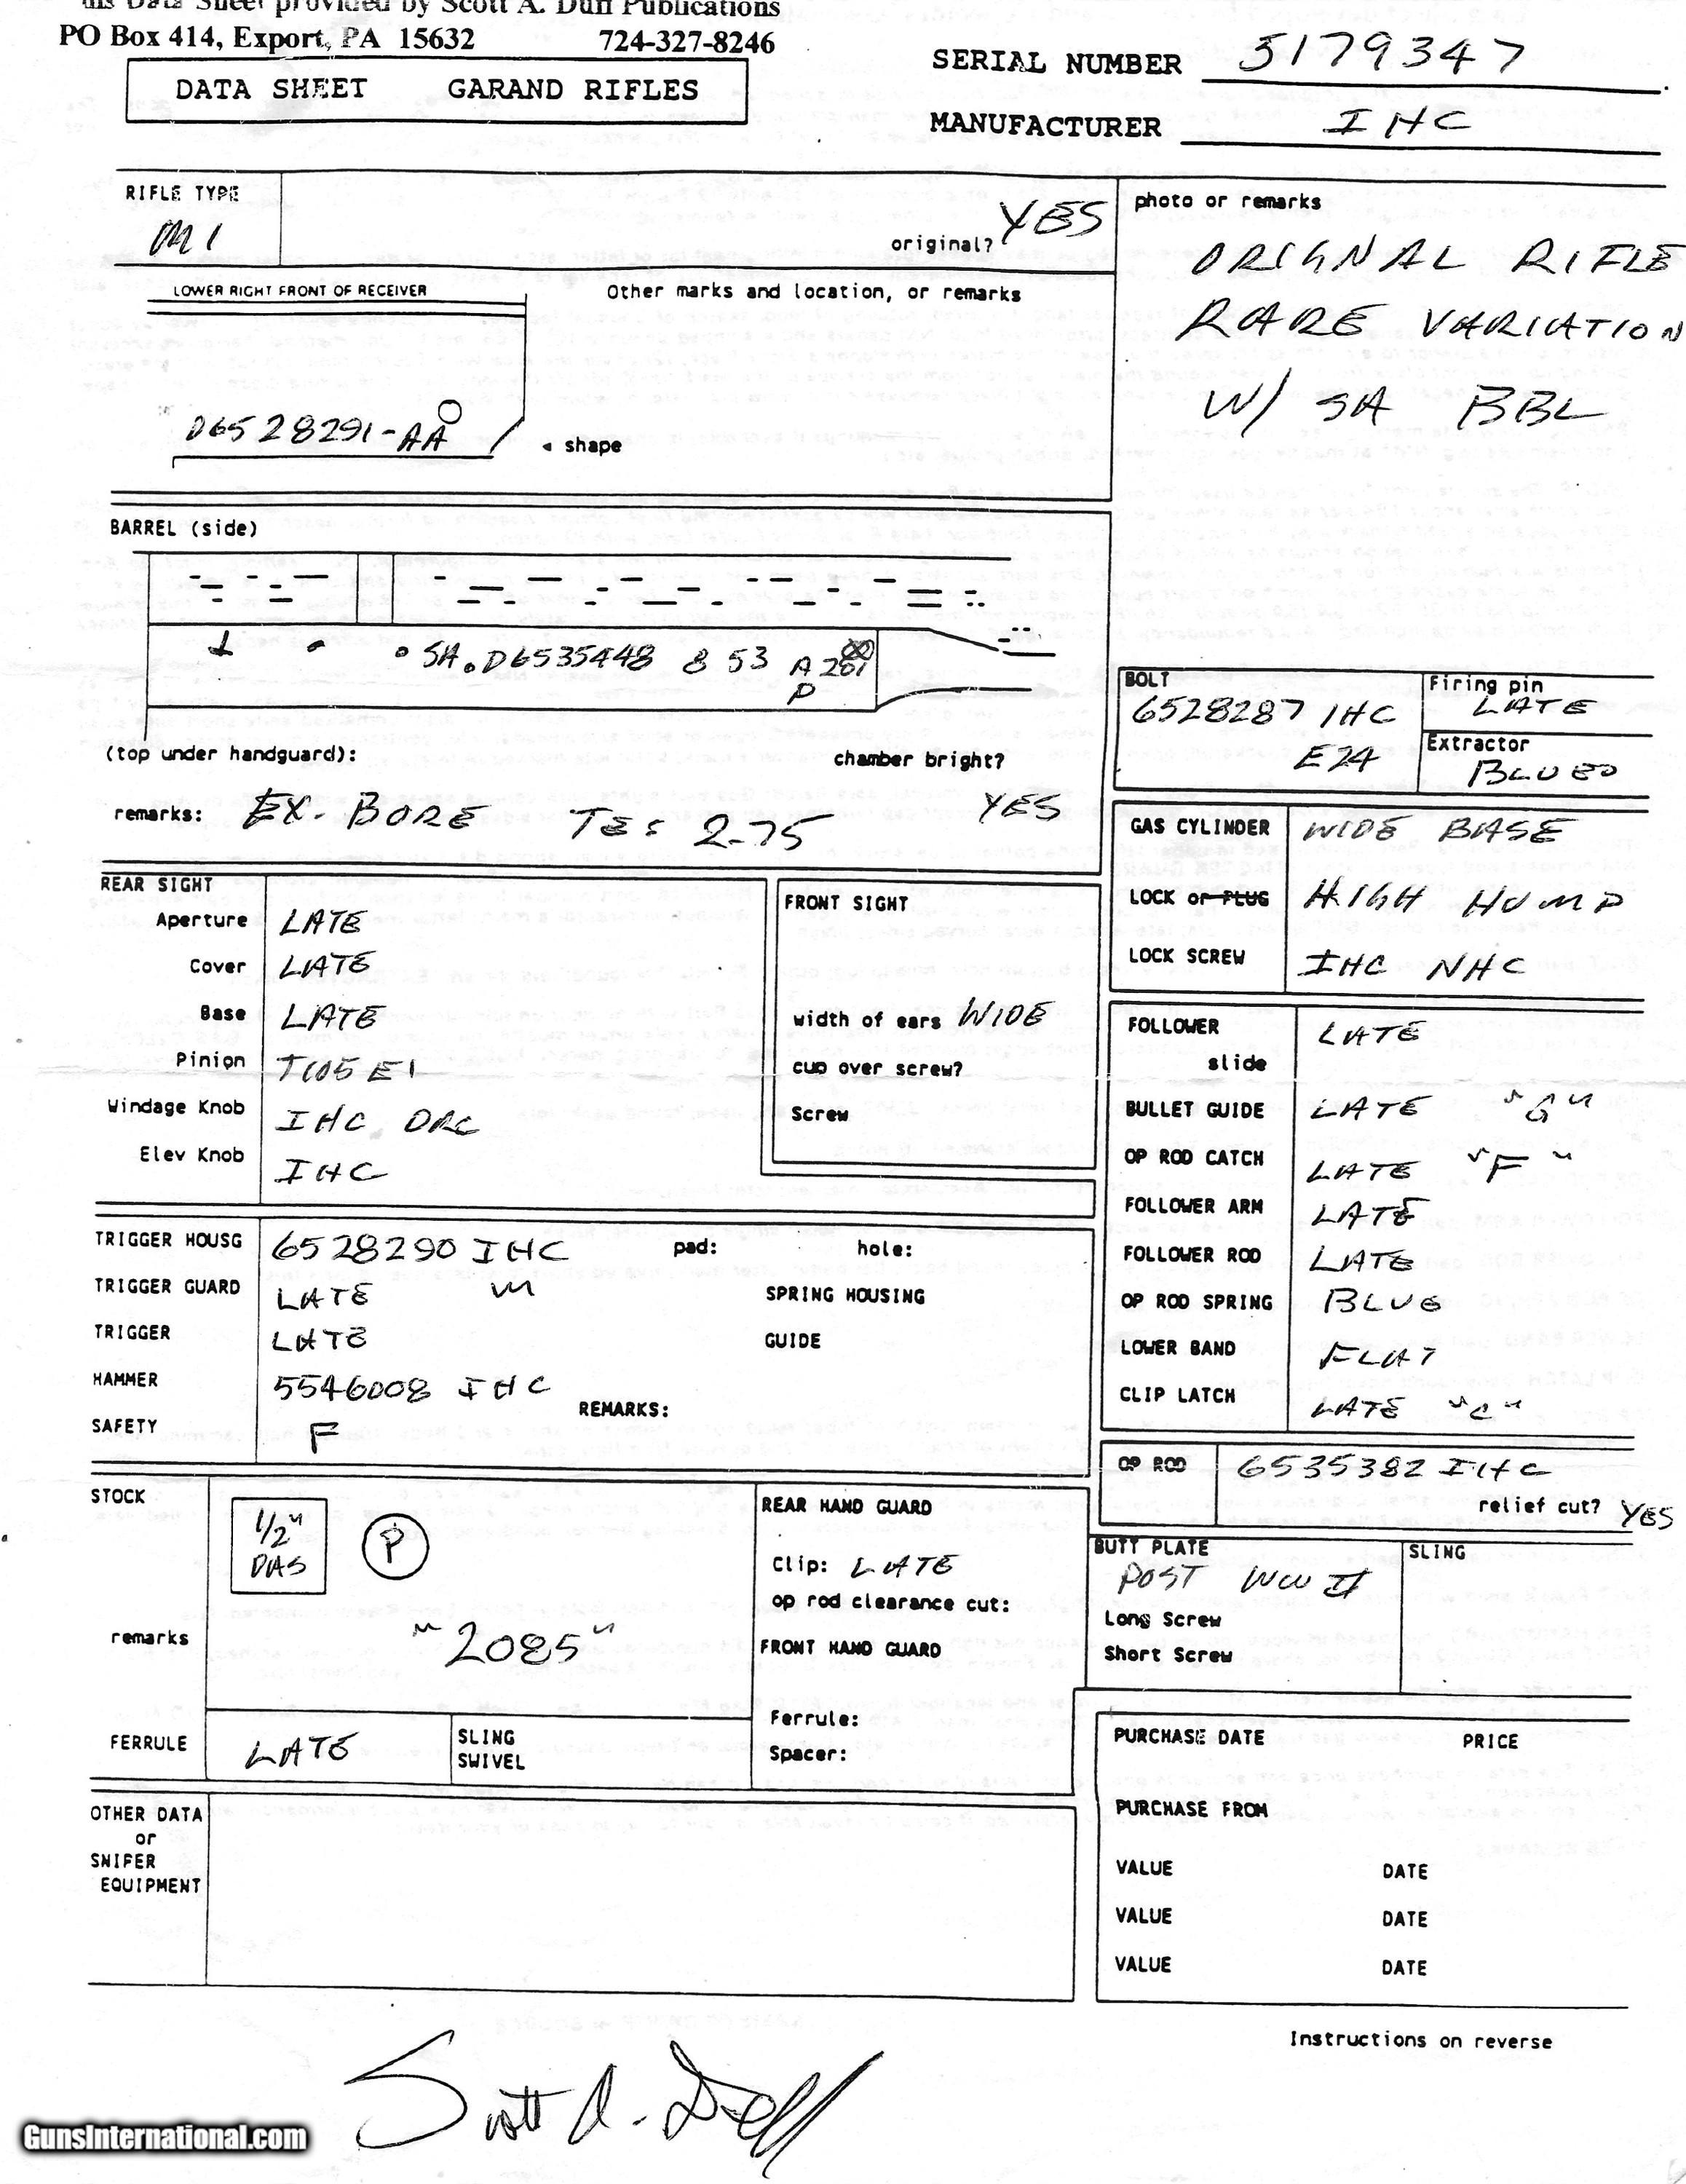 his Data Sheet provided by Scott A. Duff Publications
PO Box 414, Export, PA 15632 724-327-8246
DATA SHEET GARAND RIFLES
SERIAL NUMBER 5179347
MANUFACTURER IHC
RIFLE TYPE
M1
original? YES
LOWER RIGHT FRONT OF RECEIVER
Other marks and location, or remarks
D6528291-AA
◂ shape
photo or remarks
ORIGNAL RIFLE
RARE VARIATION
W/ SA BBL
BARREL (side)
SA.D6535448 8 53 A 201
P
(top under handguard):
chamber bright?
YES
remarks: EX. BORE TE: 2-75
BOLT
6528287 IHC
E24
Firing pin
LATE
Extractor
BLUED
GAS CYLINDER WIDE BASE
LOCK or PLUG HIGH HUMP
LOCK SCREW IHC NHC
REAR SIGHT
Aperture LATE
Cover LATE
Base LATE
Pinion T105E1
Windage Knob IHC DRC
Elev Knob IHC
FRONT SIGHT
width of ears WIDE
cup over screw?
Screw
FOLLOWER LATE
slide
BULLET GUIDE LATE "G"
OP ROD CATCH LATE "F"
FOLLOWER ARM LATE
FOLLOWER ROD LATE
OP ROD SPRING BLUE
LOWER BAND FLAT
CLIP LATCH LATE "C"
TRIGGER HOUSG 6528290 IHC pad: hole:
TRIGGER GUARD LATE SPRING HOUSING
TRIGGER LATE GUIDE
HAMMER 5546008 IHC
REMARKS:
SAFETY F
OP ROD 6535382 IHC
relief cut? YES
STOCK
1/2"
DAS
P
remarks "2085"
REAR HAND GUARD
Clip: LATE
op rod clearance cut:
FRONT HAND GUARD
Ferrule:
Spacer:
BUTT PLATE
POST WW II
Long Screw
Short Screw
SLING
FERRULE LATE
SLING
SWIVEL
PURCHASE DATE PRICE
PURCHASE FROM
VALUE DATE
VALUE DATE
VALUE DATE
OTHER DATA
or
SNIPER
EQUIPMENT
Instructions on reverse
Scott A. Duff
GunsInternational.com